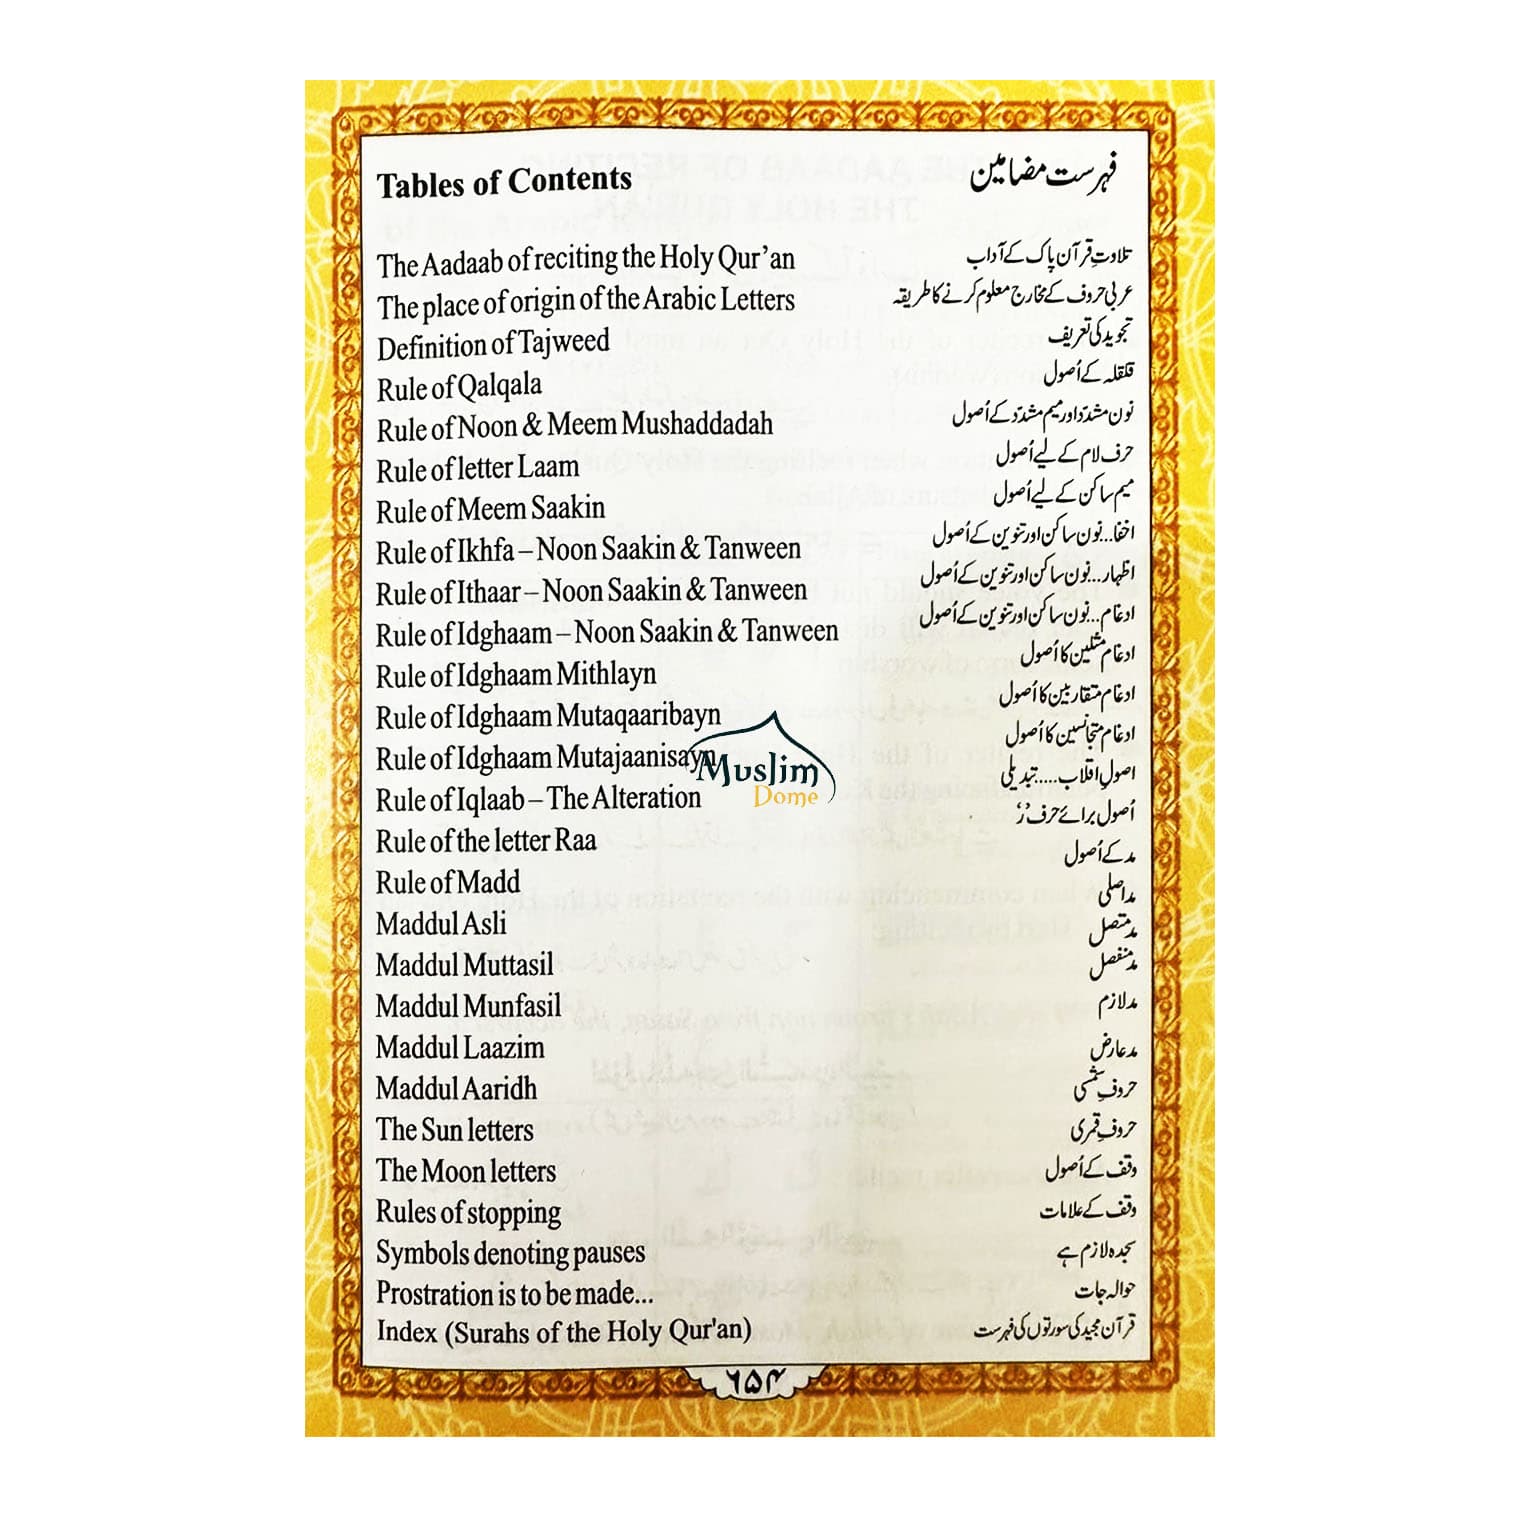 Tables of Contents فہرست مضامین
The Aadaab of reciting the Holy Qur’an تلاوتِ قرآن پاک کے آداب
The place of origin of the Arabic Letters عربی حروف کے مخارج معلوم کرنے کا طریقہ
Definition of Tajweed تجوید کی تعریف
Rule of Qalqala قلقلہ کے اُصول
Rule of Noon & Meem Mushaddadah نون مشدّد اور میم مشدّد کے اُصول
Rule of letter Laam حرف لام کے لیے اُصول
Rule of Meem Saakin میم ساکن کے لیے اُصول
Rule of Ikhfa – Noon Saakin & Tanween اخفا...نون ساکن اور تنوین کے اُصول
Rule of Ithaar – Noon Saakin & Tanween اظہار...نون ساکن اور تنوین کے اُصول
Rule of Idghaam – Noon Saakin & Tanween ادغام...نون ساکن اور تنوین کے اُصول
Rule of Idghaam Mithlayn ادغام مثلین کا اُصول
Rule of Idghaam Mutaqaaribayn ادغام متقاربین کا اُصول
Rule of Idghaam Mutajaanisayn ادغام متجانسین کا اُصول
Muslim
Dome
Rule of Iqlaab – The Alteration اصولِ اقلاب.....تبدیلی
Rule of the letter Raa اُصول برائے حرف ’ر‘
Rule of Madd مد کے اُصول
Maddul Asli مد اصلی
Maddul Muttasil مد متصل
Maddul Munfasil مد منفصل
Maddul Laazim مد لازم
Maddul Aaridh مد عارض
The Sun letters حروفِ شمسی
The Moon letters حروفِ قمری
Rules of stopping وقف کے اُصول
Symbols denoting pauses وقف کے علامات
Prostration is to be made... سجدہ لازم ہے
حوالہ جات
Index (Surahs of the Holy Qur'an) قرآن مجید کی سورتوں کی فہرست
۶۵۴